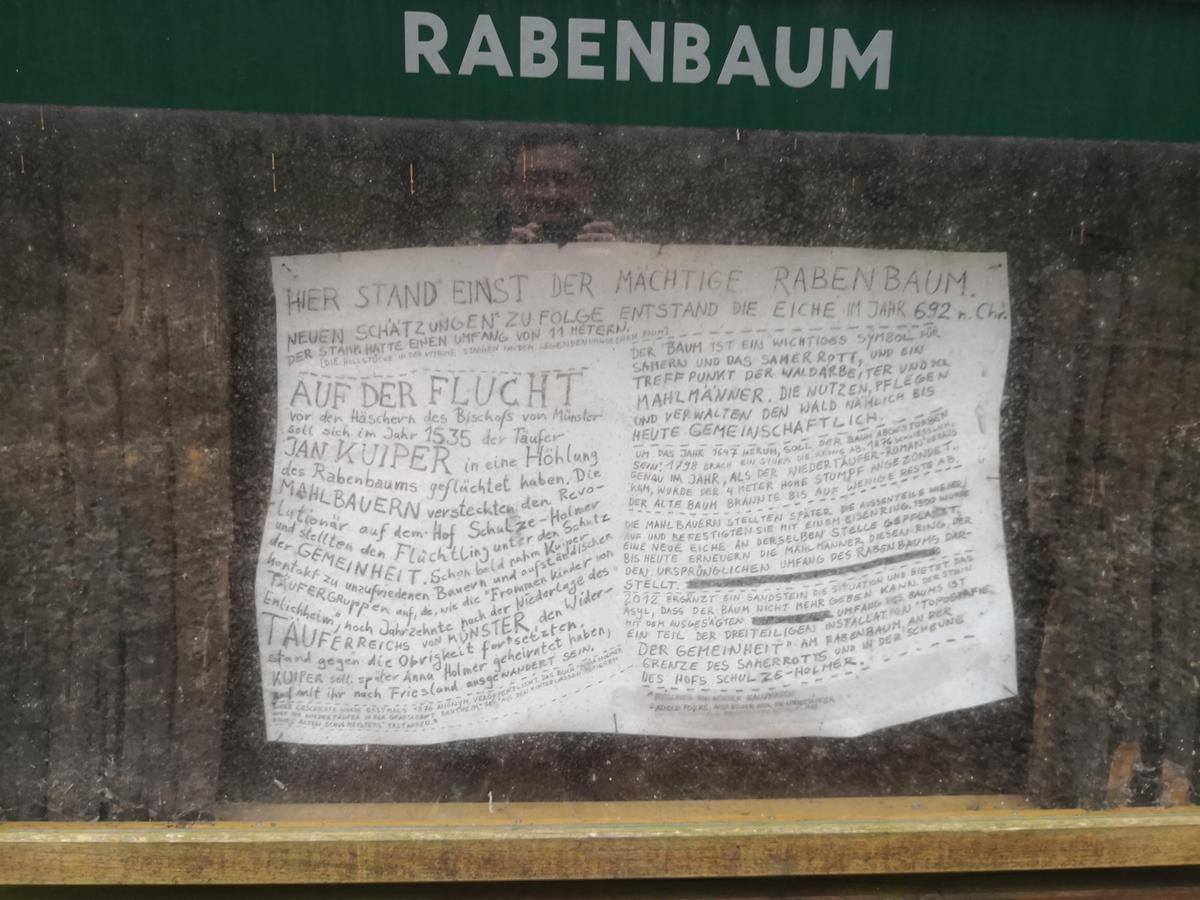 RABENBAUM
HIER STAND EINST DER MÄCHTIGE RABENBAUM.
NEUEN SCHÄTZUNGEN ZU FOLGE ENTSTAND DIE EICHE IM JAHR 692 n. Chr.
DER STAMM HATTE EINEN UMFANG VON 11 METERN.
AUF DER FLUCHT
vor den Häschern des Bischofs von Münster
soll sich im Jahr 1535 der Täufer
JAN KUIPER in eine Höhlung
des Rabenbaums geflüchtet haben. Die
MAHLBAUERN versteckten den Revo-
lutionär auf dem Hof Schulze-Holmer
und stellten den Flüchtling unter den Schutz
der GEMEINHEIT. Schon bald nahm Kuiper
kontakt zu unzufriedenen Bauern und aufständischen
TÄUFERGRUPPEN auf, die, wie die "Frommen Kinder von
Emlichheim", noch Jahrzehnte nach der Niederlage des
TÄUFERREICHS VON MÜNSTER, den Wider-
stand gegen die Obrigkeit fortsetzten.
KUIPER soll später Anna Holmer geheiratet haben,
und mit ihr nach Friesland ausgewandert sein.
DER BAUM IST EIN WICHTIGES SYMBOL FÜR
SAMERN UND DAS SAMERROTT, UND EIN
TREFFPUNKT DER WALDARBEITER UND DER
MAHLMÄNNER. DIE NUTZEN, PFLEGEN
UND VERWALTEN DEN WALD NÄMLICH BIS
HEUTE GEMEINSCHAFTLICH.
UM DAS JAHR 1647 HERUM, SOLL DER BAUM ABGESTORBEN
SEIN. 1798 BRACH EIN STURM DIE KRONE AB. 1876 SCHLIESSLICH,
GENAU IM JAHR, ALS DER WIEDERTÄUFER-ROMAN HERAUS
KAM, WURDE DER 4 METER HOHE STUMPF ANGEZÜNDET.
DER ALTE BAUM BRANNTE BIS AUF WENIGE RESTE AB.
DIE MAHLBAUERN STELLTEN SPÄTER DIE AUSSENTEILE WIEDER
AUF UND BEFESTIGTEN SIE MIT EINEM EISENRING. WURDE
EINE NEUE EICHE AN DERSELBEN STELLE GEPFLANZT,
BIS HEUTE ERNEUERN DIE MAHLMÄNNER DIESEN RING, DER
DEN URSPRÜNGLICHEN UMFANG DES RABENBAUMS DAR-
STELLT.
2012 ERGÄNZT EIN SANDSTEIN DIE SITUATION UND BIETET DAS
ASYL, DASS DER BAUM NICHT MEHR GEBEN KANN. DER STEIN
MIT DEM AUSGESÄGTEN UMFANG DES BAUMS IST
EIN TEIL DER DREITEILIGEN INSTALLATION "TOPOGRAFIE
DER GEMEINHEIT" AM RABENBAUM, AN DER
GRENZE DES SAMERROTTS UND IN DER SCHEUNE
DES HOFS SCHULZE-HOLMER.